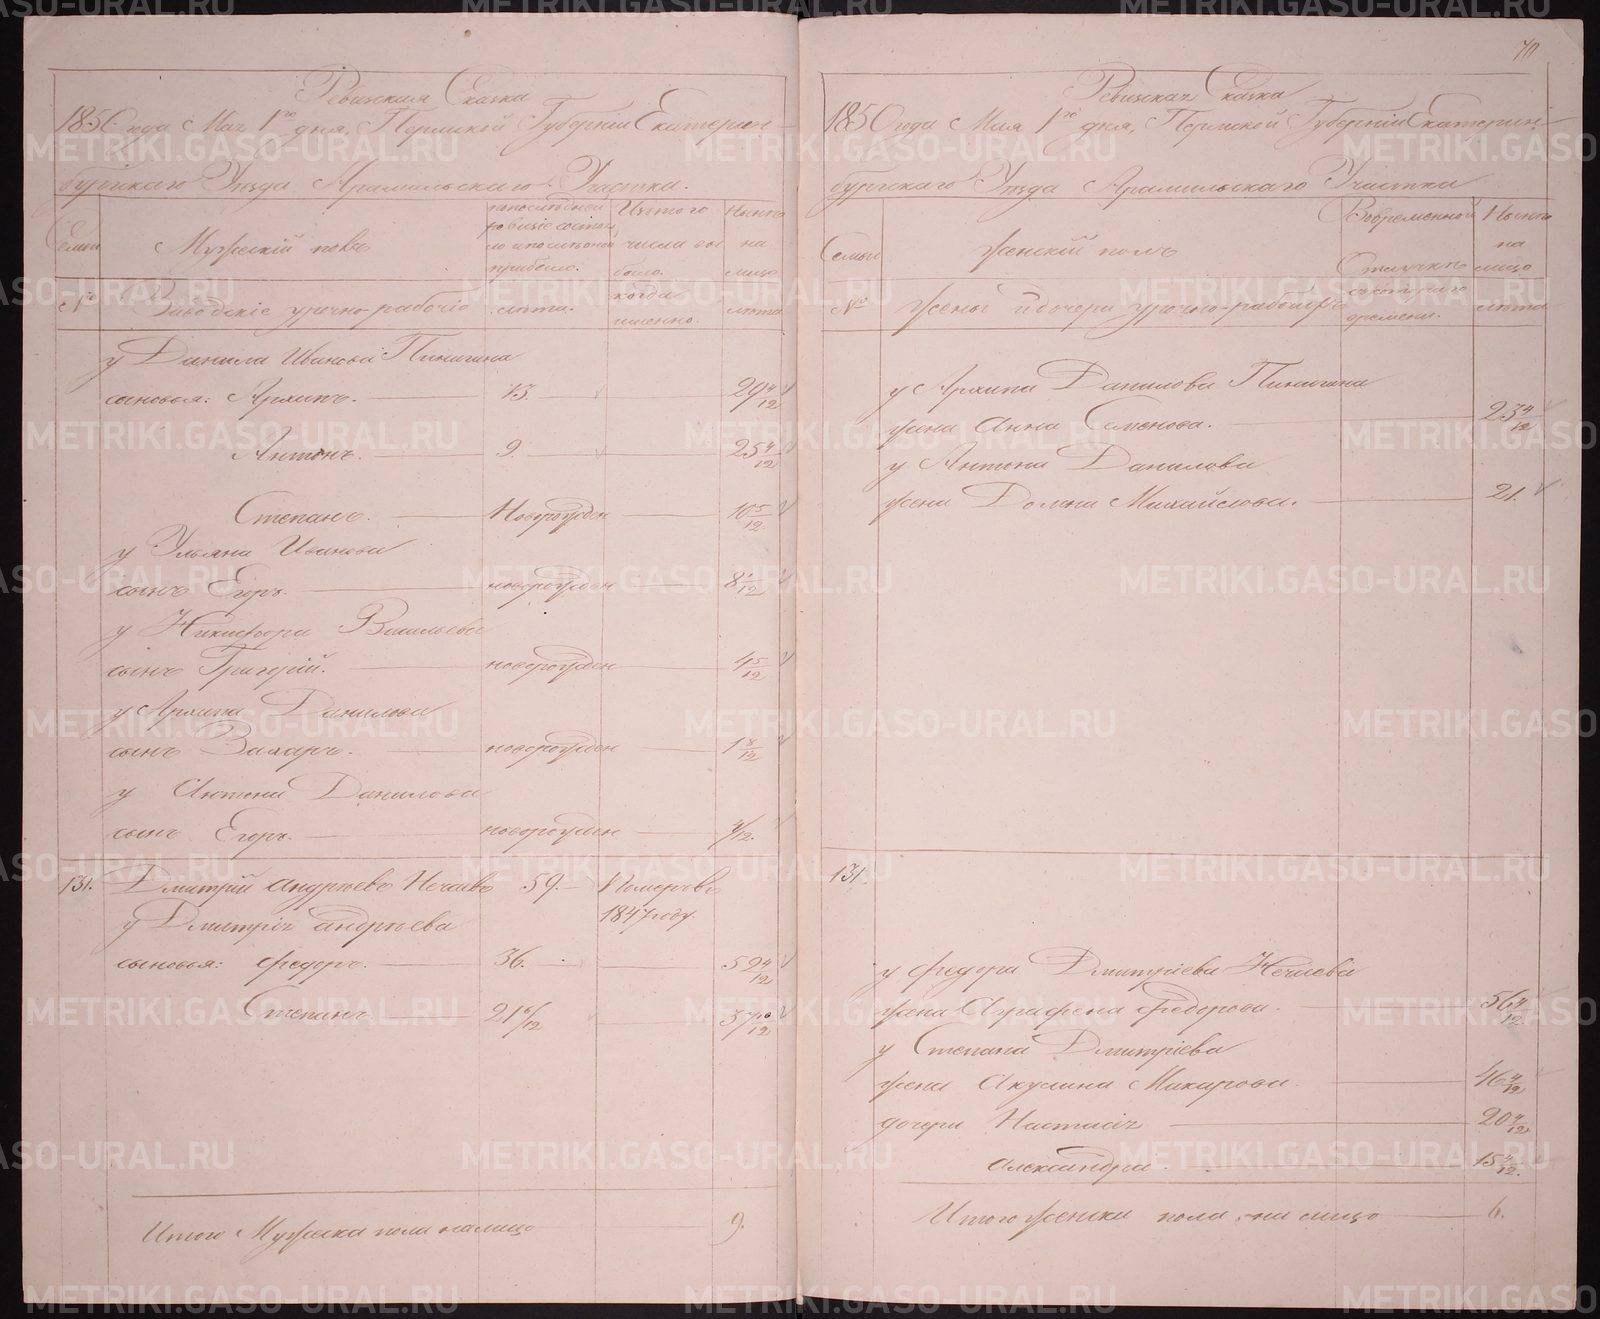 Ревизская Сказка
1850 года Мая 1го дня, Пермской Губернии Екатерин-
бургскаго Уезда Арамильскаго Участка.
Семьи
Мужескій полъ
по последней
ревизіе состоя
ло и после оной
прибыло.
Изъ того
числа вы
было.
Ныне
на
лицо
№
Заводскіе урочно-рабочіе
лета.
когда
именно.
лета
у Данила Иванова Пинигина
сыновья: Архипъ. 13. 29 4/12
Антонъ. 9. 25 4/12
Степанъ. Новорожден 10 5/12
у Ульяна Иванова
сынъ Егоръ. новорожден 8 1/12
у Никифора Васильева
сынъ Григорій. новорожден 4 5/12
у Архипа Данилова
сынъ Захаръ. новорожден 1 8/12
у Антона Данилова
сынъ Егоръ. новорожден 4/12.
131. Дмитрій Андреевъ Нечаевъ 59. Померъ въ
1847 году.
у Дмитрія Андреева
сыновья: Федоръ. 36. 52 4/12
Степанъ 21 6/12 37 10/12
Итого Мужеска пола налицо 9.
70
Ревизская Сказка
1850 года Мая 1го дня, Пермской Губерніи Екатерин-
бургскаго Уезда Арамильскаго Участка
Семьи
Женскій полъ
Во временной
Отлучке
Ныне
на
лицо
№
Жены и дочери урочно-рабочихъ
съ котораго
времени.
лета
у Архипа Данилова Пинигина
жена Анна Семенова. 23 4/12
у Антона Данилова
жена Домна Михайлова. 21.
131.
у Федора Дмитріева Нечаева
жена Аграфена Федорова. 56 4/12
у Степана Дмитріева
жена Акулина Макарова 46 4/12
дочери Настасія 20 4/12
Александра. 15 4/12.
Итого женска пола на лицо 6.
METRIKI.GASO-URAL.RU